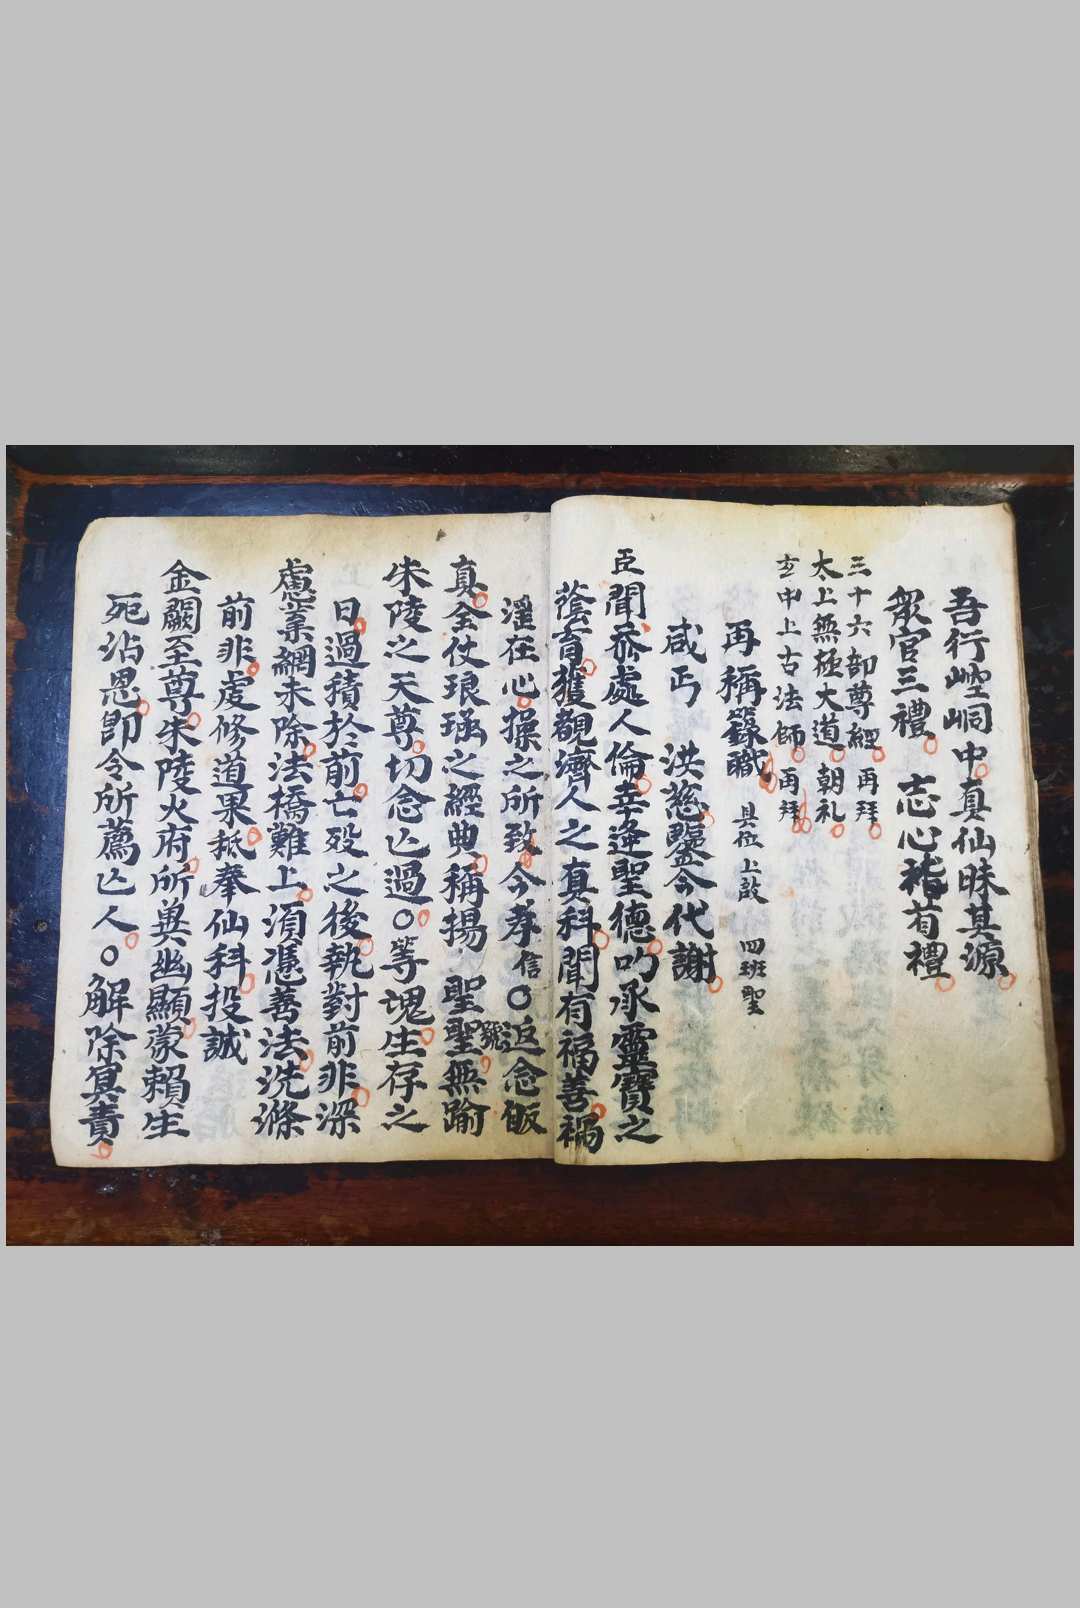 吾行崆峒中真仙昧其源
衆官三禮 志心稽首禮
三十六部尊經 再拜
太上無極大道 朝礼
玄中上古法師 再拜
再稱籙職 具位上啟 四班聖
咸丐 洪慈鑒今代謝
臣聞忝處人倫幸逢聖德叨承靈寶之
蔭育獲覩濟人之真科聞有福善禍
滛在心操之所致今孝信○返念皈
真全仗琅函之經典稱揚 聖號聖無踰
朱陵之天尊切念亡過○等魂生存之
日過積於前亡殁之後執對前非深
慮業網未除法橋難上須憑善法洗滌
前非虔修道果祗奉仙科投誠
金闕至尊朱陵火府所兾幽顯蒙賴生
死沾恩即令所薦亡人○解除冥責